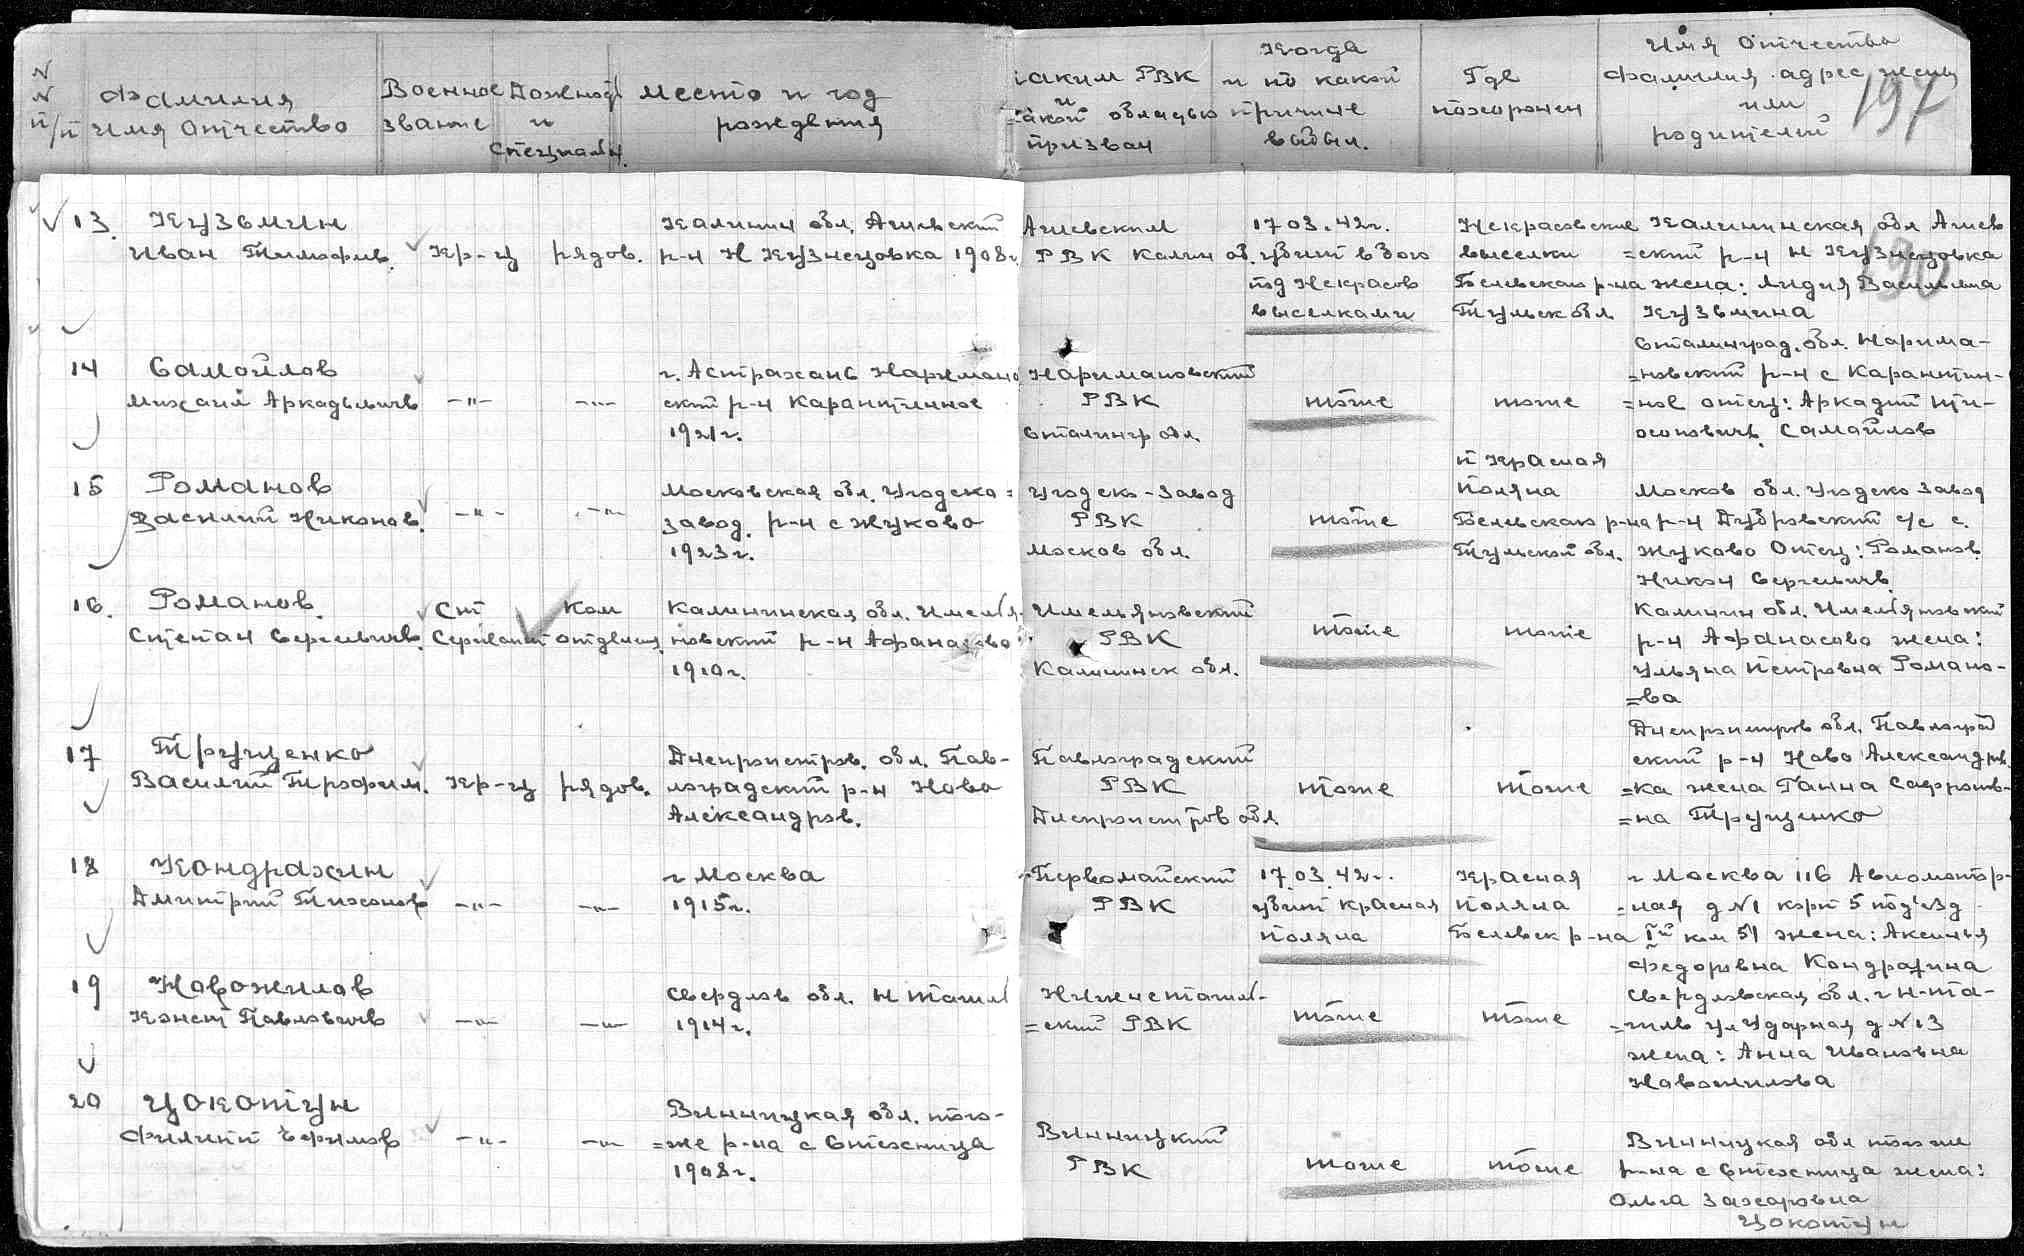 N N п/п
Фамилия
Имя Отчество
Военное
звание
Должность
и
специальн.
Место и год
рождения
каким РВК
и
какой областью
призван
Когда
и по какой
причине
выбыл.
Где
похоронен
Имя Отчество
фамилия адрес жены
или
родителей
197
190
13. Кузьмин
Иван Тимофив.
Кр-ц
рядов.
Калинин обл.
р-н Н Кузнецовка 1908г.
РВК Калин об.
17.03.42г.
убит в бою
под Некрасов
выселками
Некрасовские
выселки
Белевского р-на
Тульск обл
Калининская обл
=ский р-н Н Кузнецовка
жена: Лидия Васильевна
Кузьмина
14 Самойлов
Михаил Аркадьевичь
-"-
-"-
г. Астрахань Наримано
ский р-н Карантинное
1921г.
Наримановский
РВК
Сталингр обл.
тоже
тоже
Сталинград. обл. Нарима-
=новский р-н с Карантин-
=ное отец: Аркадий
Самайлов
15 Романов
Василий Никонов.
-"-
-"-
Московская обл. Угодско=
завод. р-н с Жуково
1923г.
Угодско-Завод
РВК
Москов обл.
тоже
п Красная
Поляна
Белевского р-на
Тульской обл.
Москов обл. Угодско Завод
р-н Дубровский с/с с.
Жуково Отец: Романов
Никон Сергеевичь
16. Романов.
Степан Сергеевичь
Ст
Сержант
Ком
отделен.
Калининская обл. Имелья-
новский р-н Афанасово
1910г.
Имельяновский
РВК
Калининск обл.
тоже
тоже
Калинин обл. Имельяновский
р-н Афанасово жена:
Ульяна Петровна Романо-
=ва
17 Трущенко
Василий Трофим.
Кр-ц
рядов.
Днепропетров. обл. Пав-
лоградский р-н Ново
Александров.
Павлоградский
РВК
Днепропетров обл
тоже
тоже
Днепропетров обл. Павлоград
ский р-н Ново Александров.
=ка жена Ганна Сафронов-
=на Трущенко
18 Кондрахин
Дмитрий Тихонов
-"-
-"-
г Москва
1915г.
Первомайский
РВК
17.03.42г.
убит Красная
Поляна
Красная
Поляна
Белевск р-на
г Москва 116 Авиомотор-
=ная д N1 корп 5 под'езд
ком 51 жена: Аксинья
Федоровна Кондрахина
19 Новожилов
Павловичь
-"-
-"-
Свердлов обл. Н Тагил
1914г.
Нижнетагиль-
=ский РВК
тоже
тоже
Свердловская обл. г Н-Та-
=гиль ул Ударная д N13
жена: Анна Ивановна
Новожилова
20 Цокотун
Филипп Ефимов
-"-
-"-
Винницкая обл. того-
=же р-на с Стехница
1908г.
Винницкий
РВК
тоже
тоже
Винницкая обл того же
р-на с Стехница жена:
Ольга Захаровна
Цокотун